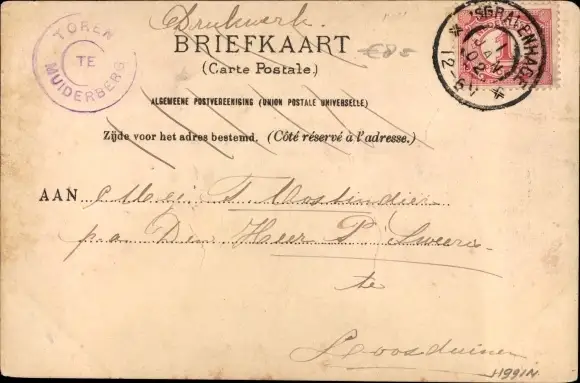 Drukwerk.
TOREN
TE
MUIDERBERG
BRIEFKAART
€8-
(Carte Postale.)
'SGRAVENHAGE
1 JAN 02
12-5V
ALGEMEENE POSTVEREENIGING (UNION POSTALE UNIVERSELLE)
Zijde voor het adres bestemd. (Côté réservé à l'adresse.)
AAN Mej T Oostindier
p/a Den Heer P Sweers
te
Loosduinen
H991N